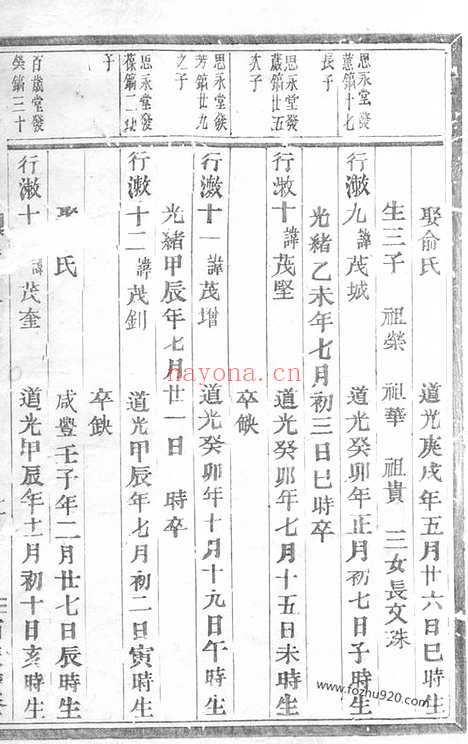 娶俞氏 道光庚戌年五月廿六日巳時生
生三子 祖榮 祖華 祖貴 三女長文珠
思永堂發
蕙鎬十七
長子
行 九 諱茂城 道光癸卯年正月初七日子時生
光緒乙未年七月初三日巳時卒
思永堂發
葳鎬廿五
次子
行 十 諱茂堅 道光癸卯年七月十五日未時生
卒缺
思永堂發
芳鎬廿九
之子
行 十一 諱茂增 道光癸卯年十月十九日午時生
光緒甲辰年七月廿一日 時卒
思永堂發
葆鎬二功
子
行 十二 諱茂釗 道光甲辰年七月初二日寅時生
卒缺
娶 氏 咸豐壬子年二月廿七日辰時生
百歲堂發
鎬三十
行 十 諱茂奎 道光甲辰年十一月初十日亥時生
nayona.cn
www.fozhu920.com